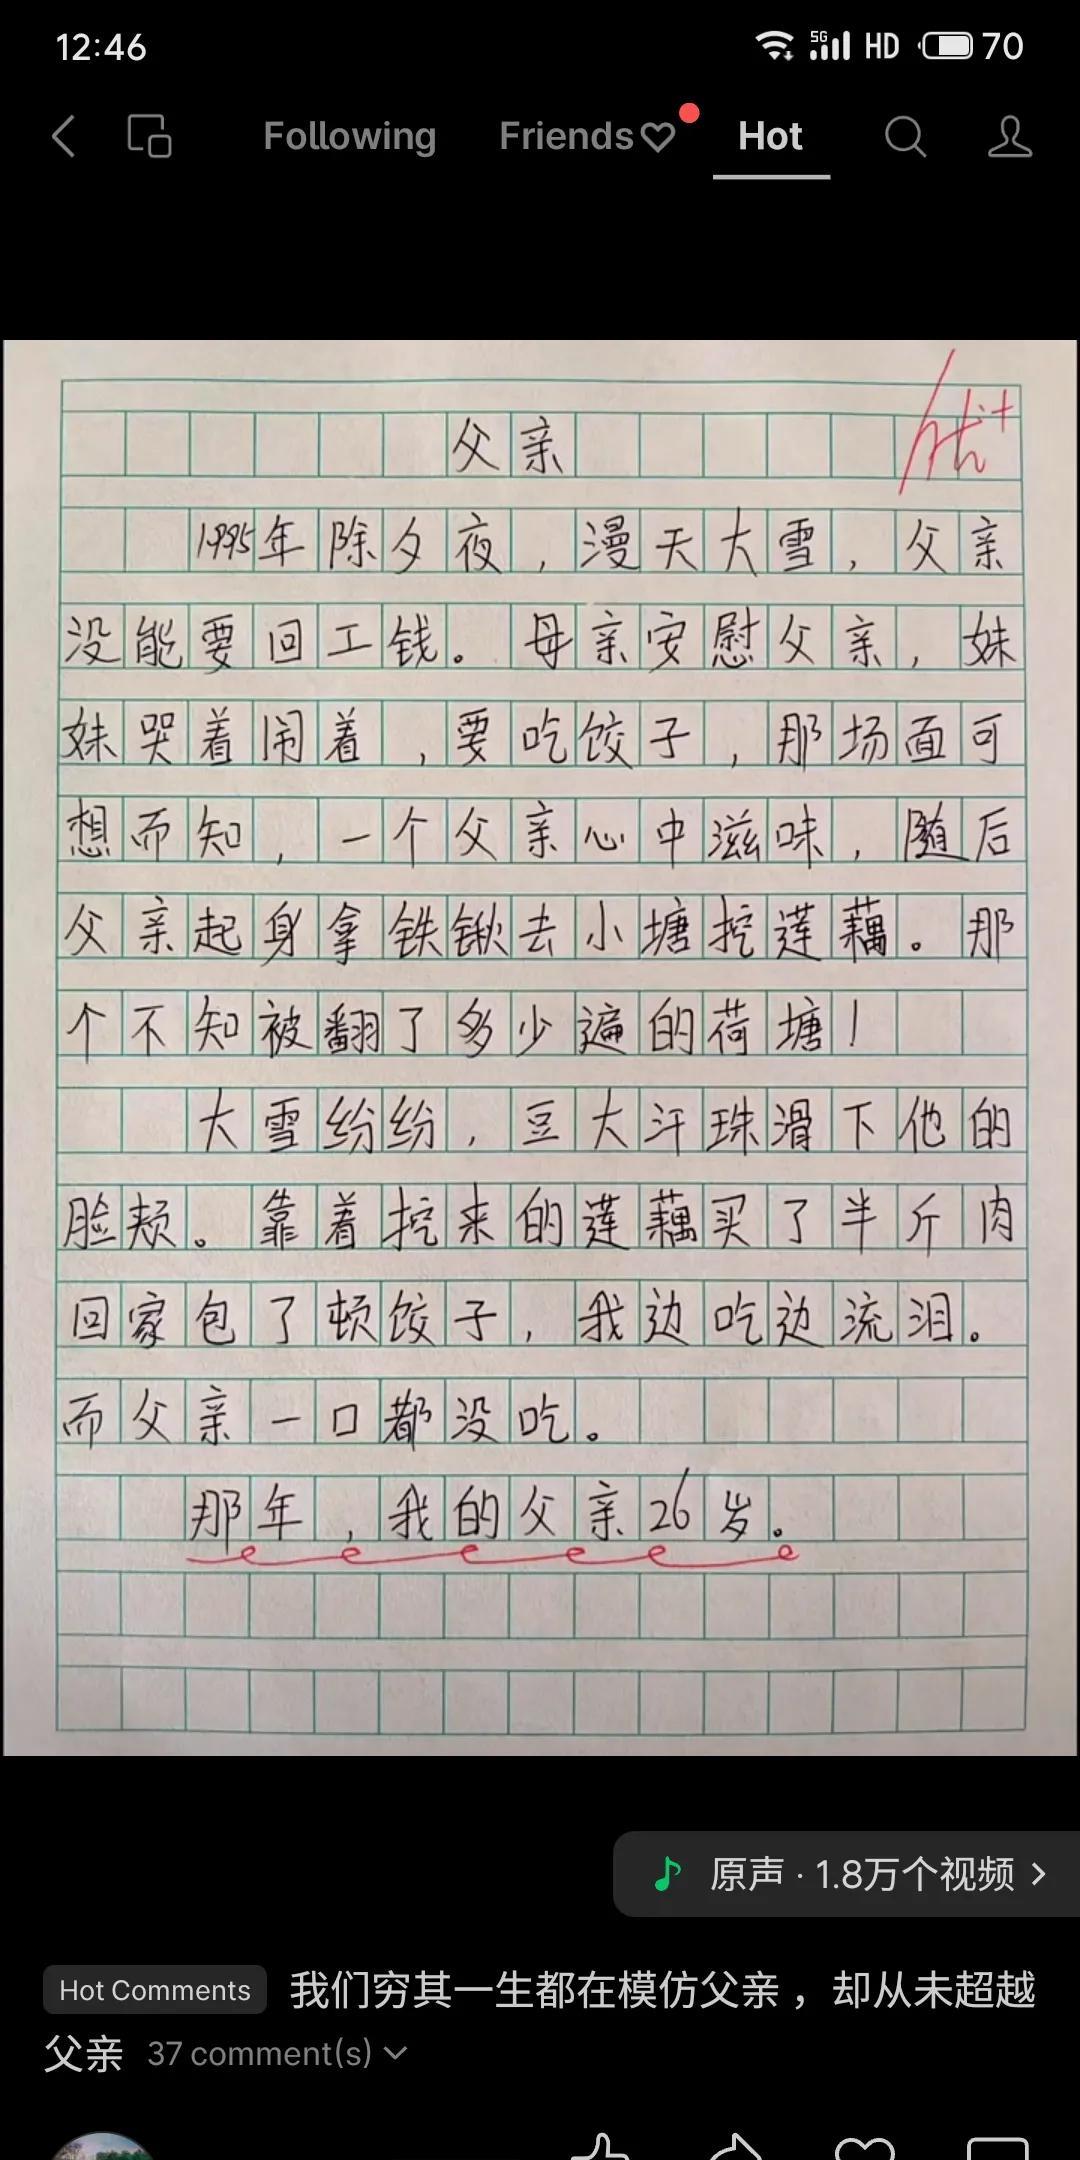 12:46
5G HD 70
Following Friends Hot
优+
父亲
1995年除夕夜，漫天大雪，父亲
没能要回工钱。母亲安慰父亲，妹
妹哭着闹着，要吃饺子，那场面可
想而知，一个父亲心中滋味，随后
父亲起身拿铁锹去小塘挖莲藕。那
个不知被翻了多少遍的荷塘！
大雪纷纷，豆大汗珠滑下他的
脸颊。靠着挖来的莲藕买了半斤肉
回家包了顿饺子，我边吃边流泪。
而父亲一口都没吃。
那年，我的父亲26岁。
原声·1.8万个视频
Hot Comments 我们穷其一生都在模仿父亲，却从未超越
父亲 37 comment(s)